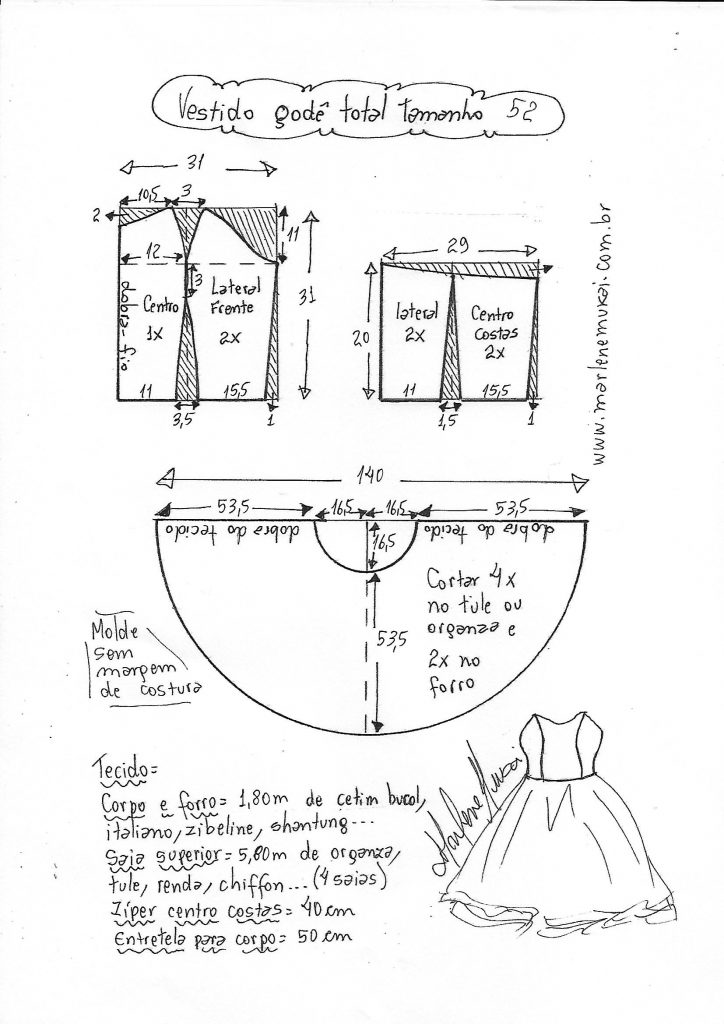 Vestido godê total Tamanho 52
31
10,5 3
2
11
12
3
31
Centro
1x
Lateral
Frente
2x
dobra-fio
11 15,5
3,5 1
29
20
lateral
2x
Centro
costas
2x
11 15,5
1,5 1
www.marlenemukai.com.br
140
53,5 16,5 16,5 53,5
dobra do tecido dobra do tecido
16,5
53,5
Cortar 4x
no tule ou
organza e
2x no
forro
Molde
sem
margem
de costura
Tecido=
Corpo e forro= 1,80m de cetim bucol,
italiano, zibeline, shantung...
Saia superior= 5,80m de organza,
tule, renda, chiffon... (4 saias)
Zíper centro costas= 40 cm
Entretela para corpo= 50 cm
Marlene Mukai